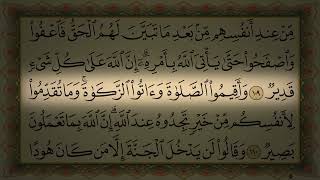 مِّنْ عِندِ أَنفُسِهِم مِّنۢ بَعْدِ مَا تَبَيَّنَ لَهُمُ ٱلْحَقُّ فَٱعْفُوا۟
وَٱصْفَحُوا۟ حَتَّىٰ يَأْتِىَ ٱللَّهُ بِأَمْرِهِۦٓ إِنَّ ٱللَّهَ عَلَىٰ كُلِّ شَىْءٍ
قَدِيرٌ ١٠٩ وَأَقِيمُوا۟ ٱلصَّلَوٰةَ وَءَاتُوا۟ ٱلزَّكَوٰةَ وَمَا تُقَدِّمُوا۟
لِأَنفُسِكُم مِّنْ خَيْرٍ تَجِدُوهُ عِندَ ٱللَّهِ إِنَّ ٱللَّهَ بِمَا تَعْمَلُونَ
بَصِيرٌ ١١٠ وَقَالُوا۟ لَن يَدْخُلَ ٱلْجَنَّةَ إِلَّا مَن كَانَ هُودًا